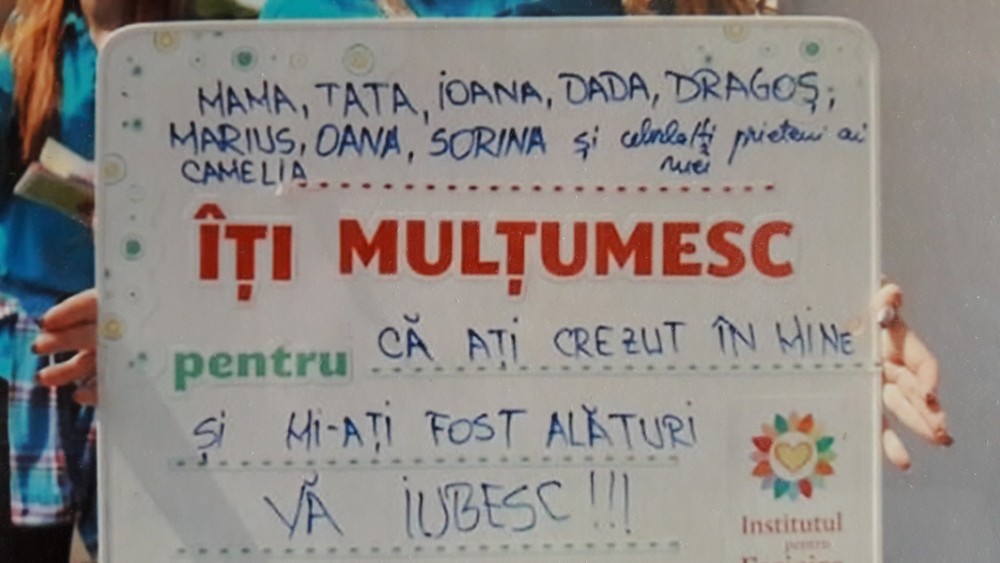 MAMA, TATA, IOANA, DADA, DRAGOȘ,
MARIUS, OANA, SORINA și celorlalți prieteni ai
CAMELIA mei
ÎȚI MULȚUMESC
pentru CĂ AȚI CREZUT ÎN MINE
ȘI MI-AȚI FOST ALĂTURI
VĂ IUBESC!!!
Institutul
pentru